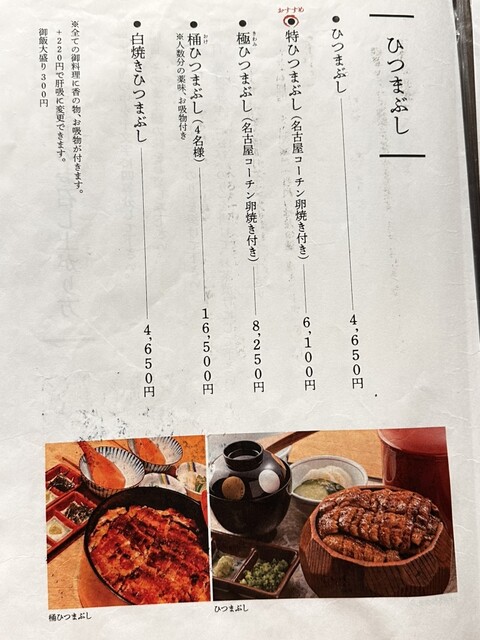 ひつまぶし
●ひつまぶし 4,650円
おすすめ
特ひつまぶし(名古屋コーチン卵焼き付き) 6,100円
きわみ
●極ひつまぶし(名古屋コーチン卵焼き付き) 8,250円
おけ
●桶ひつまぶし(4名様) 16,500円
※人数分の薬味、お吸物付き
●白焼きひつまぶし 4,650円
※全ての御料理に香の物、お吸物が付きます。
+220円で肝吸に変更できます。
御飯大盛り300円
桶ひつまぶし
ひつまぶし